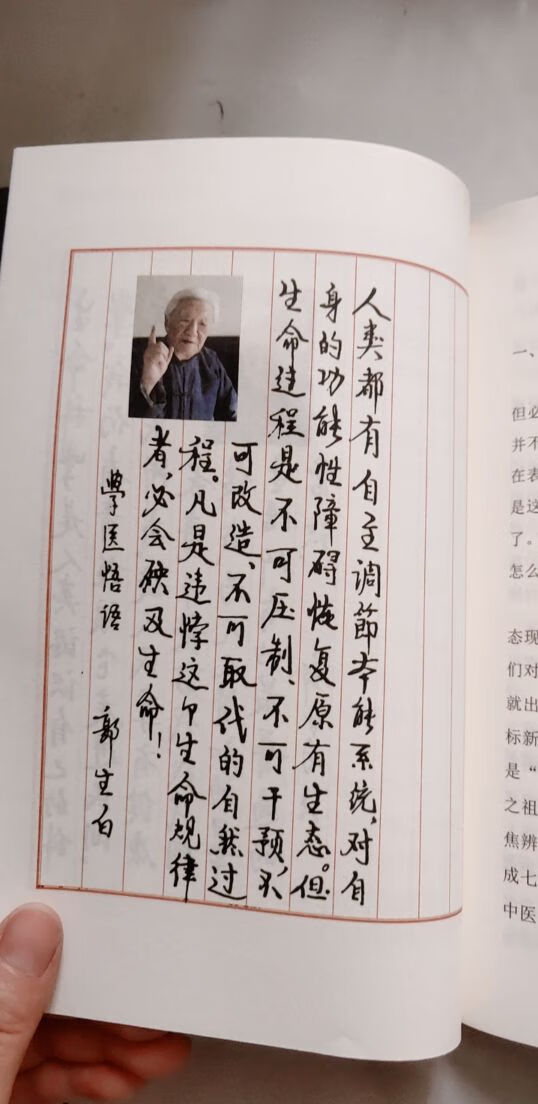 人类都有自主调节本能系统，对自
身的功能性障碍恢复原有生态。但
生命过程是不可压制、不可干预、不
可改造、不可取代的自然过
程。凡是违悖这个生命规律
者，必会殃及生命！
学医悟语 郭生白
一、
但必
并不
在表
是这
了。
怎么
态现
们对
就出
标新
是“
之祖
焦辨
成七
中医